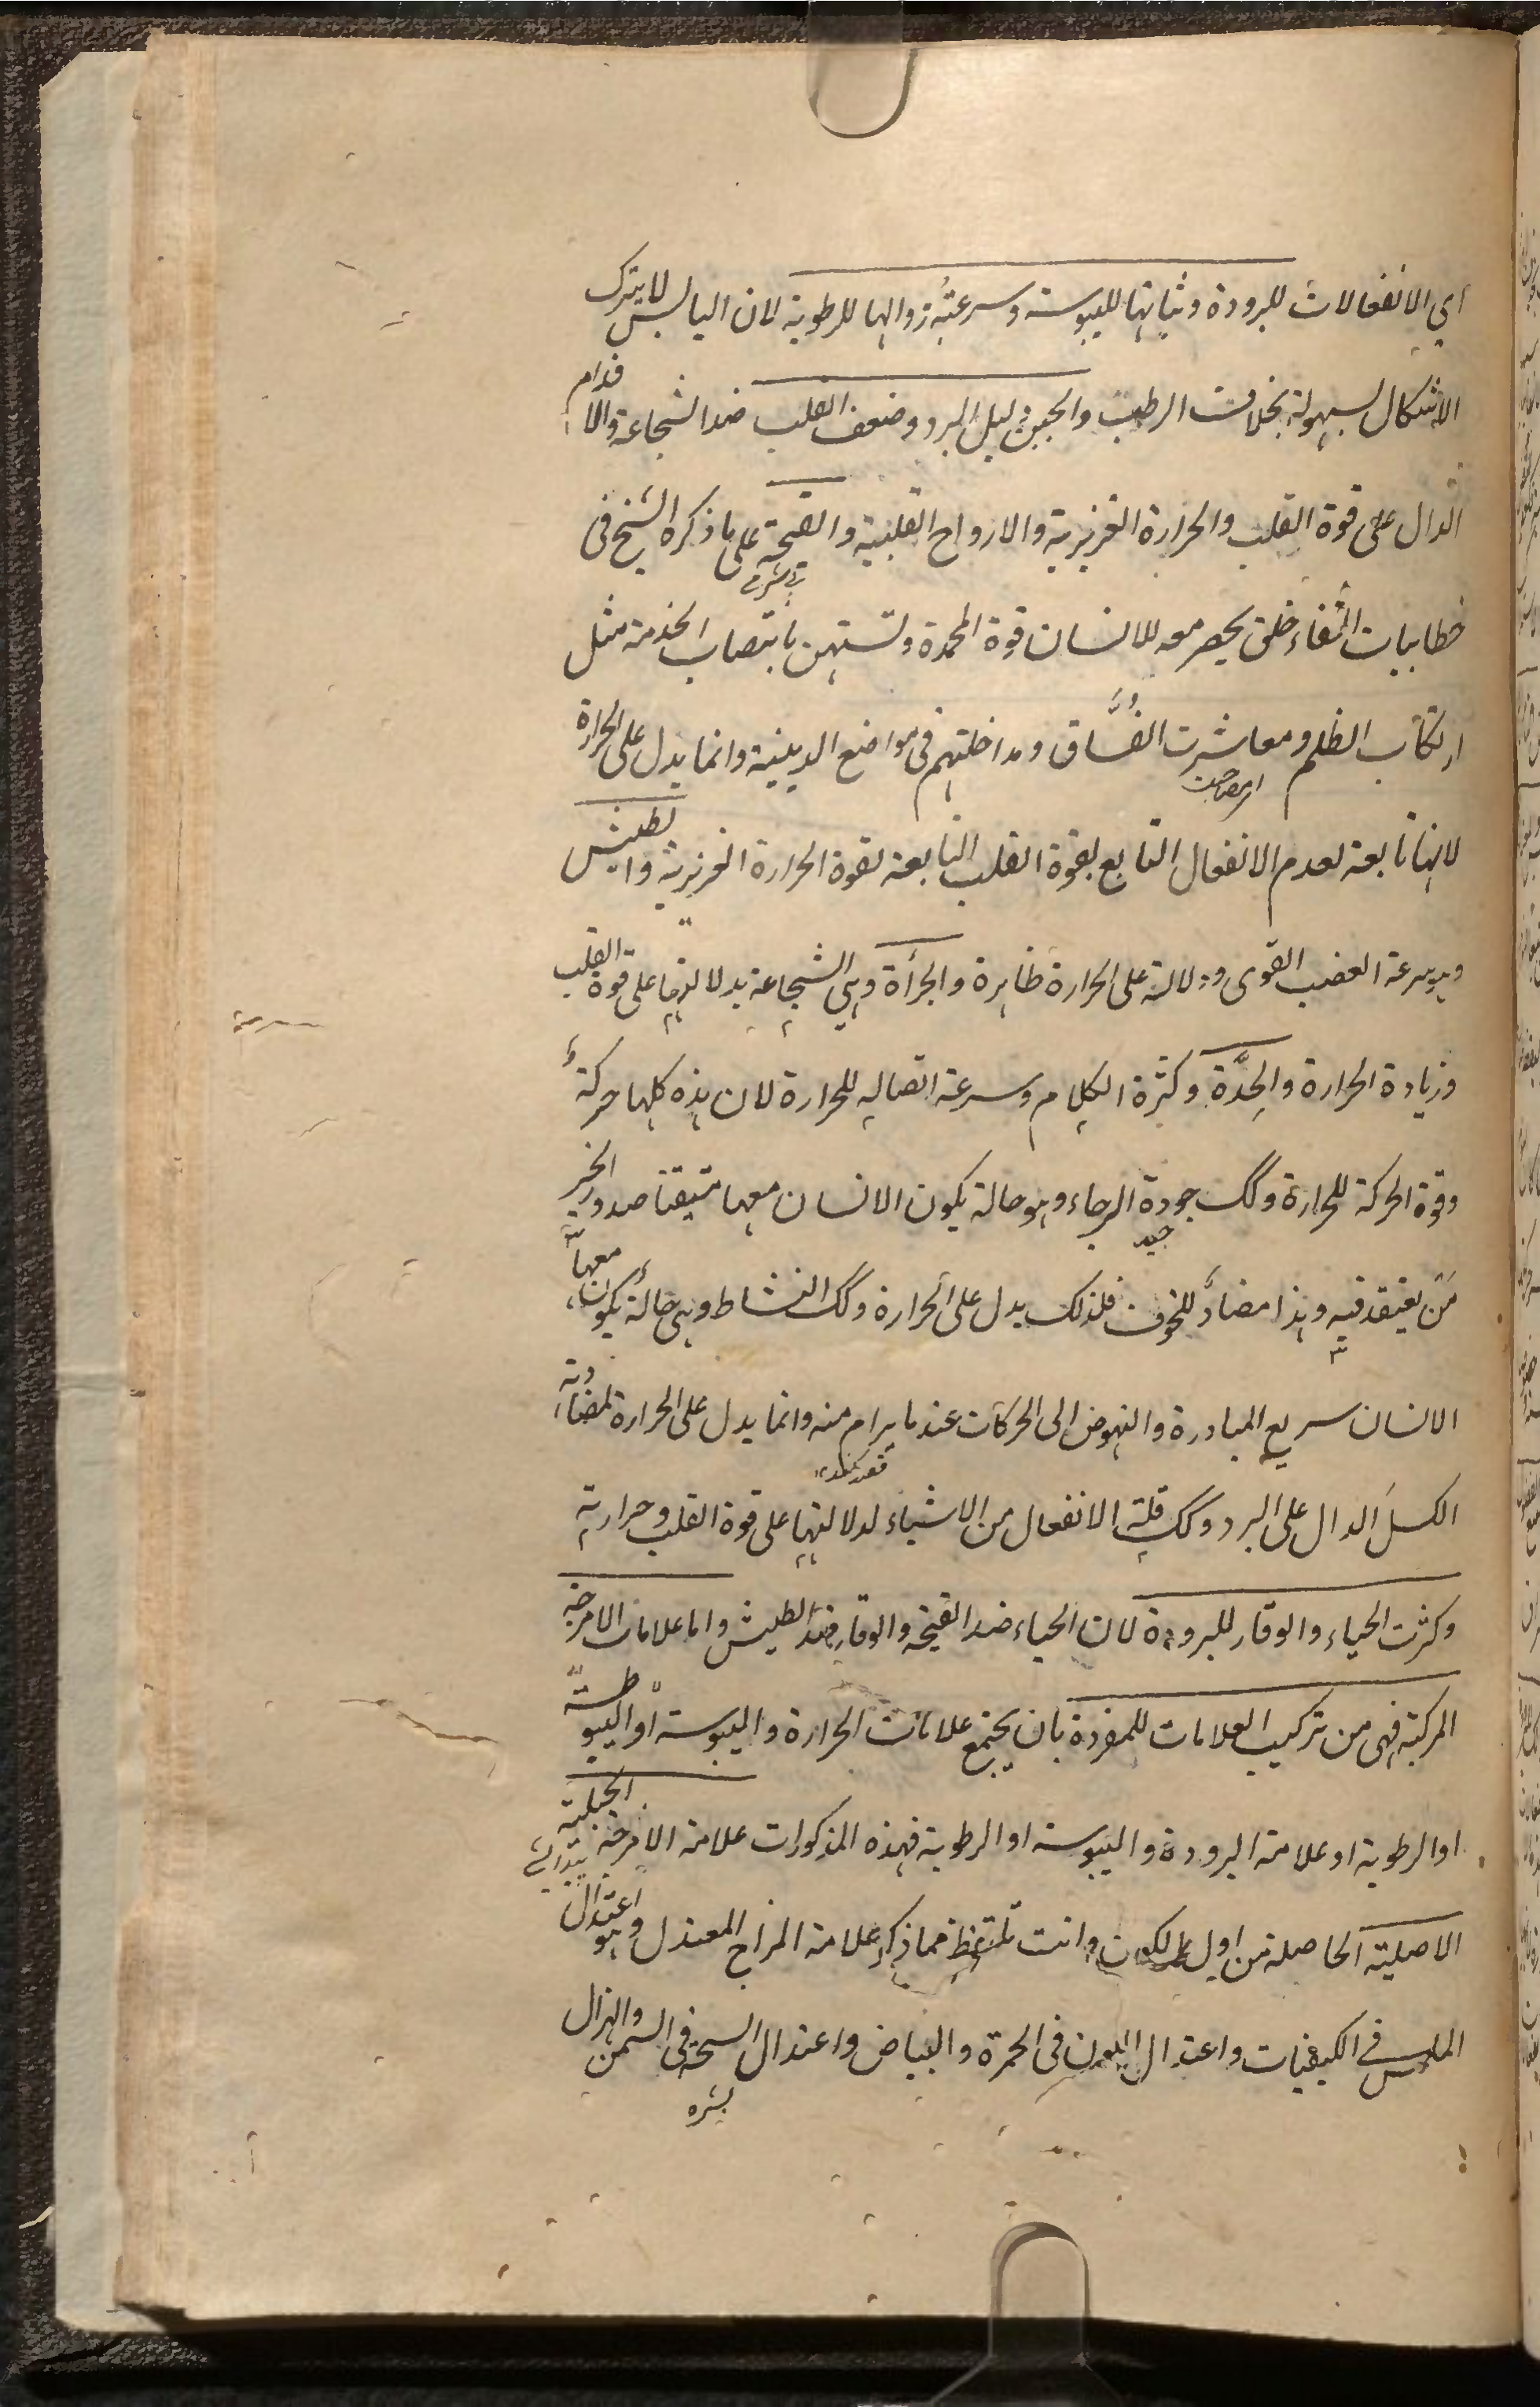 اي الانفعالات للبرودة وثباتها لليبوسة وسرعة زوالها للرطوبة لان اليابس لا يترك
الاشكال بسهولة بخلاف الرطب والجبن دليل البرد وضعف القلب ضد الشجاعة والاقدام
الدال على قوة القلب والحرارة الغريزية والارواح القلبية والقحة على ما ذكره الشيخ في
بے شرمی
خطابيات الشفاء خلق يحصر معه للانسان قوة المحمدة وتستهن بانتصاب الخدمة مثل
ارتكاب الظلم ومعاشرت الفُسَّاق ومداخلتهم في مواضع الدينية وانما يدل على الحرارة
اى مصاحبت
لانها تابعة لعدم الانفعال التابع لقوة القلب التابعة لقوة الحرارة الغريزية والطيش
وهو سرعة الغضب القوى ودلالته على الحرارة ظاهرة والجرأة وهي الشجاعة بدلالتها على قوة القلب
وزيادة الحرارة والحِدَّة وكثرة الكلام وسرعة اتصاله للحرارة لان هذه كلها حركة
وقوة الحركة للحرارة وكك جودة الرجاء وهو حالة يكون الانسان معها متيقنا صدور الخير
جيد
مَن يعتقد فيه وهذا مضادٌّ للخوف فلذلك يدل على الحرارة وكك النشاط وهى حالة يكون معها
الانسان سريع المبادرة والنهوض الى الحركات عند ما يرام منه وانما يدل على الحرارة لمضادته
الكسل الدال على البرد وكك قلة الانفعال من الاشياء لدلالتها على قوة القلب وحرارته
وكثرت الحياء والوقار للبرودة لان الحياء ضد القحة والوقار ضد الطيش واما علامات الامزجة
المركبة فهى من تركيب العلامات للمفردة بان يجتمع علامات الحرارة واليبوسة او اليبو
او الرطوبة او علامة البرودة واليبوسة او الرطوبة فهذه المذكورات علامة الامزجة الجبلية
الاصلية الحاصلة من اول الكون وانت تلتقط مما ذكر علامة المزاج المعتدل وهو اعتدال
الملمس فى الكيفيات واعتدال اللون فى الحمرة والبياض واعتدال السحنة فى السمن والهزال
بشره